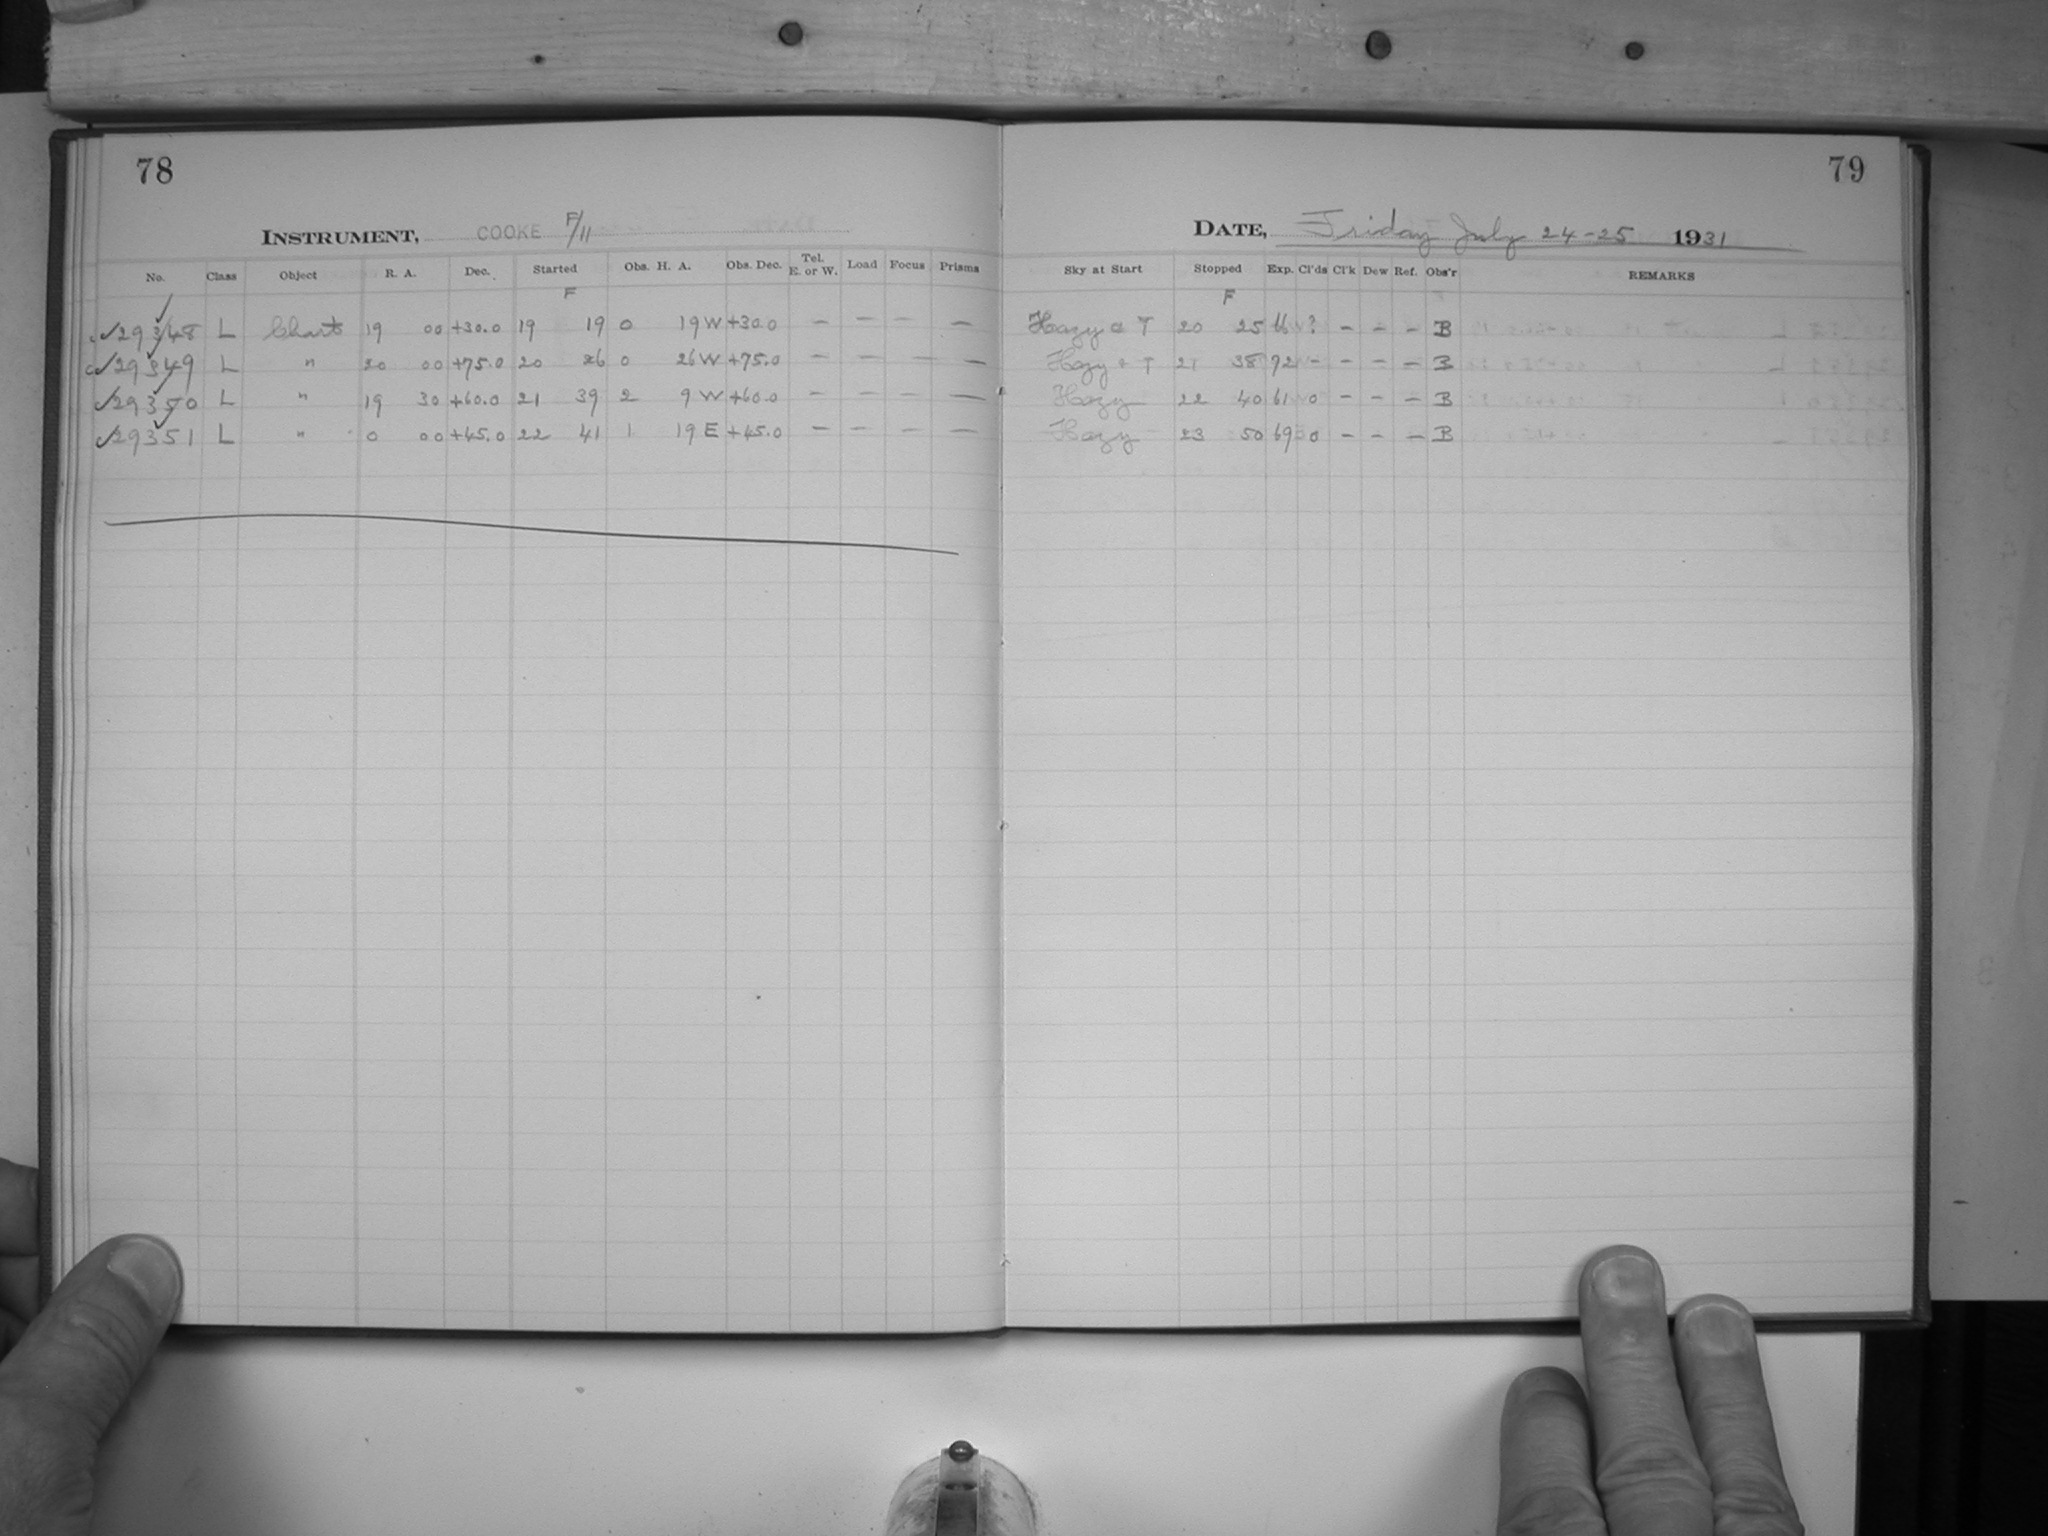 78
INSTRUMENT, COOKE F/11
No. Class Object R. A. Dec. Started Obs. H. A. Obs. Dec. Tel. E. or W. Load Focus Prisms
F
✓29348 L Chart 19 00 +30.0 19 19 0 19 W +30.0 – – – –
✓29349 L " 20 00 +75.0 20 26 0 26 W +75.0 – – – –
✓29350 L " 19 30 +60.0 21 39 2 9 W +60.0 – – – –
✓29351 L " 0 00 +45.0 22 41 1 19 E +45.0 – – – –
79
DATE, Friday July 24-25 1931
Sky at Start Stopped Exp. Cl'ds Cl'k Dew Ref. Obs'r REMARKS
F
Hazy & T 20 25 66 ? – – – B
Hazy + T 21 38 72 – – – – B
Hazy 22 40 61 0 – – – B
Hazy 23 50 69 0 – – – B